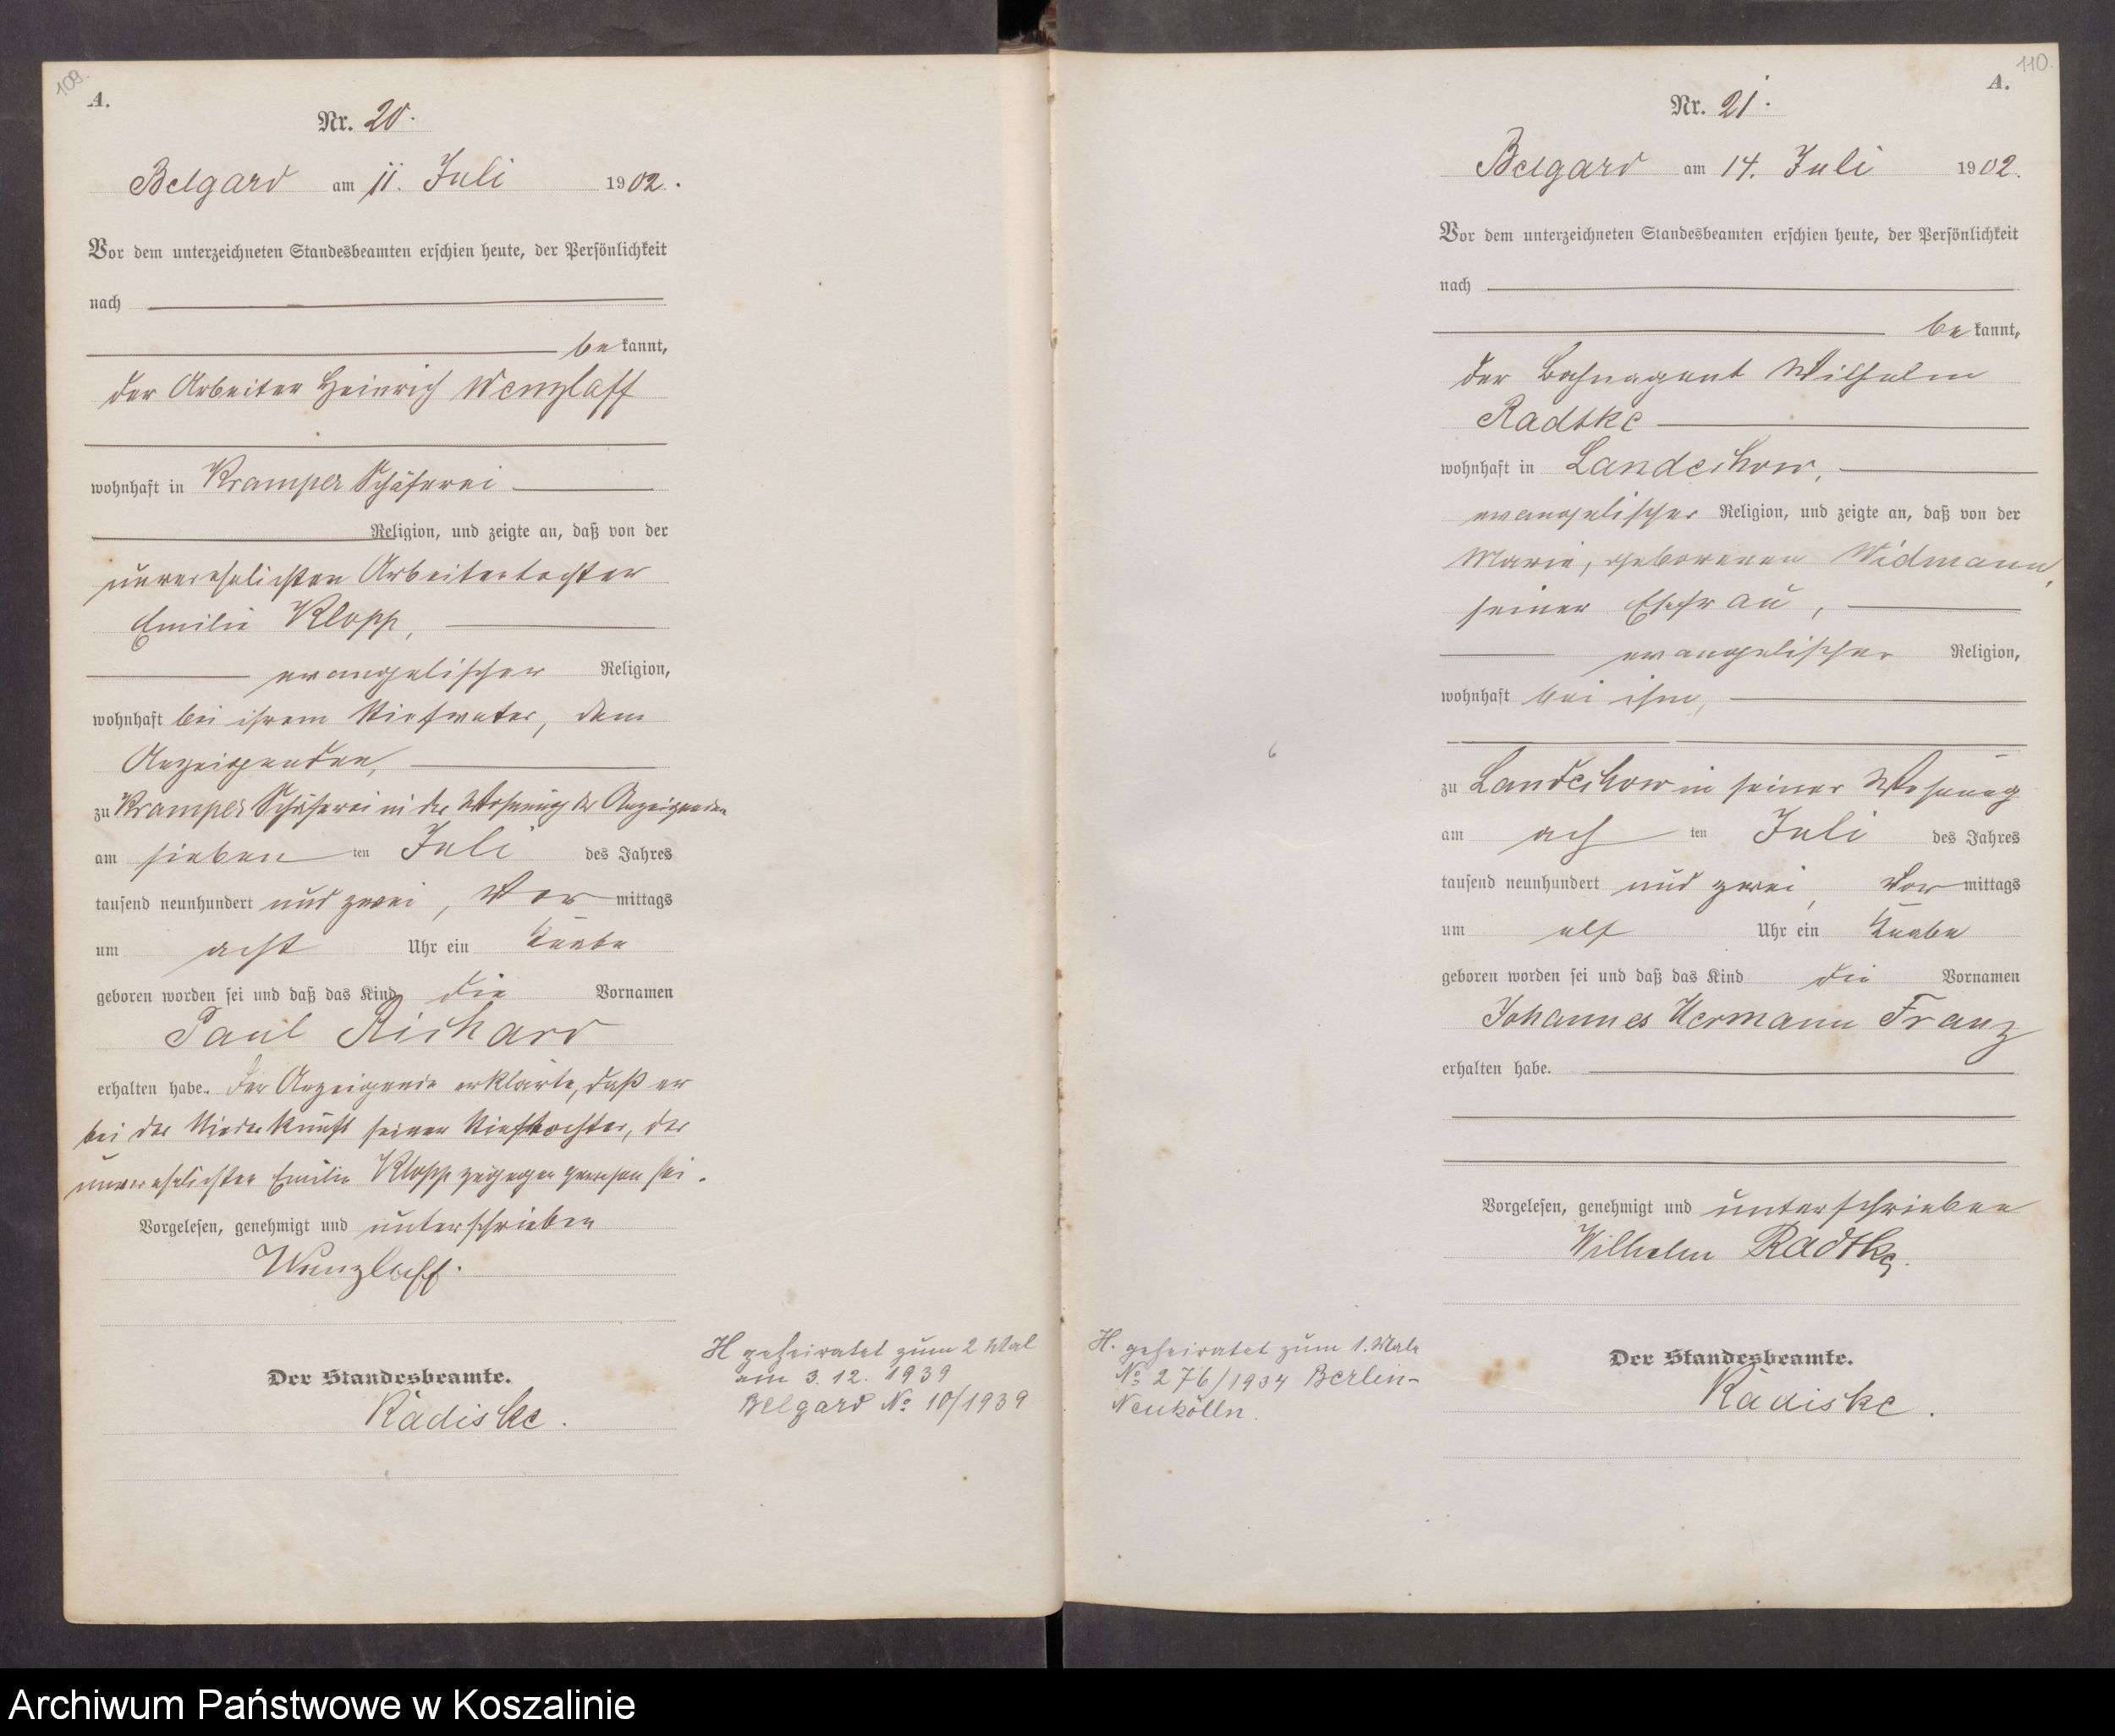 109.
A.
Nr. 20.
Belgard am 11. Juli 1902.
Vor dem unterzeichneten Standesbeamten erschien heute, der Persönlichkeit
nach
bekannt,
der Arbeiter Heinrich Wenzlaff
wohnhaft in Kramper Schäferei
Religion, und zeigte an, daß von der
unverehelichten Arbeitertochter
Emilie Klopp,
evangelischer Religion,
wohnhaft bei ihrem Stiefvater, dem
Anzeigenden,
zu Kramper Schäferei in der Wohnung des Anzeigenden
am sieben ten Juli des Jahres
tausend neunhundert und zwei, Vor mittags
um acht Uhr ein Knabe
geboren worden sei und daß das Kind die Vornamen
Paul Richard
erhalten habe. Der Anzeigende erklärte, daß er
bei der Niederkunft seiner Stieftochter, der
unverehelichten Emilie Klopp zugegen gewesen sei.
Vorgelesen, genehmigt und unterschrieben
Wenzlaff.
Der Standesbeamte.
Radiske.
H geheiratet zum 2 Mal
am 3. 12. 1939
Belgard No 10/1939
110.
A.
Nr. 21.
Belgard am 14. Juli 1902.
Vor dem unterzeichneten Standesbeamten erschien heute, der Persönlichkeit
nach
bekannt,
der Bahnagent Wilhelm
Radtke
wohnhaft in Landechow,
evangelischer Religion, und zeigte an, daß von der
Marie, geborenen Widmann,
seiner Ehefrau,
evangelischer Religion,
wohnhaft bei ihm,
zu Landechow in seiner Wohnung
am ach ten Juli des Jahres
tausend neunhundert und zwei, Vor mittags
um elf Uhr ein Knabe
geboren worden sei und daß das Kind die Vornamen
Johannes Hermann Franz
erhalten habe.
Vorgelesen, genehmigt und unterschrieben
Wilhelm Radtke.
Der Standesbeamte.
Radiske.
H. geheiratet zum 1. Male
No 276/1934 Berlin-
Neukölln.
Archiwum Państwowe w Koszalinie